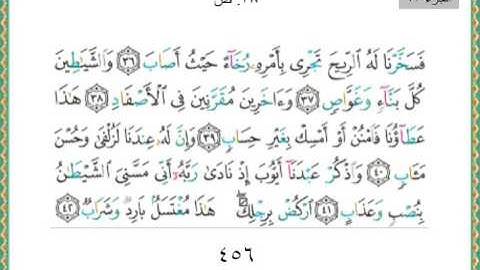 ٣٨. ص
فَسَخَّرْنَا لَهُ الرِّيحَ تَجْرِى بِأَمْرِهِۦ رُخَآءً حَيْثُ أَصَابَ ٣٦ وَالشَّيَٰطِينَ
كُلَّ بَنَّآءٍ وَغَوَّاصٍ ٣٧ وَءَاخَرِينَ مُقَرَّنِينَ فِى الْأَصْفَادِ ٣٨ هَٰذَا
عَطَآؤُنَا فَامْنُنْ أَوْ أَمْسِكْ بِغَيْرِ حِسَابٍ ٣٩ وَإِنَّ لَهُۥ عِندَنَا لَزُلْفَىٰ وَحُسْنَ
مَـَٔابٍ ٤٠ وَاذْكُرْ عَبْدَنَآ أَيُّوبَ إِذْ نَادَىٰ رَبَّهُۥٓ أَنِّى مَسَّنِىَ الشَّيْطَٰنُ
بِنُصْبٍ وَعَذَابٍ ٤١ ارْكُضْ بِرِجْلِكَ ۖ هَٰذَا مُغْتَسَلٌۢ بَارِدٌ وَشَرَابٌ ٤٢
٤٥٦